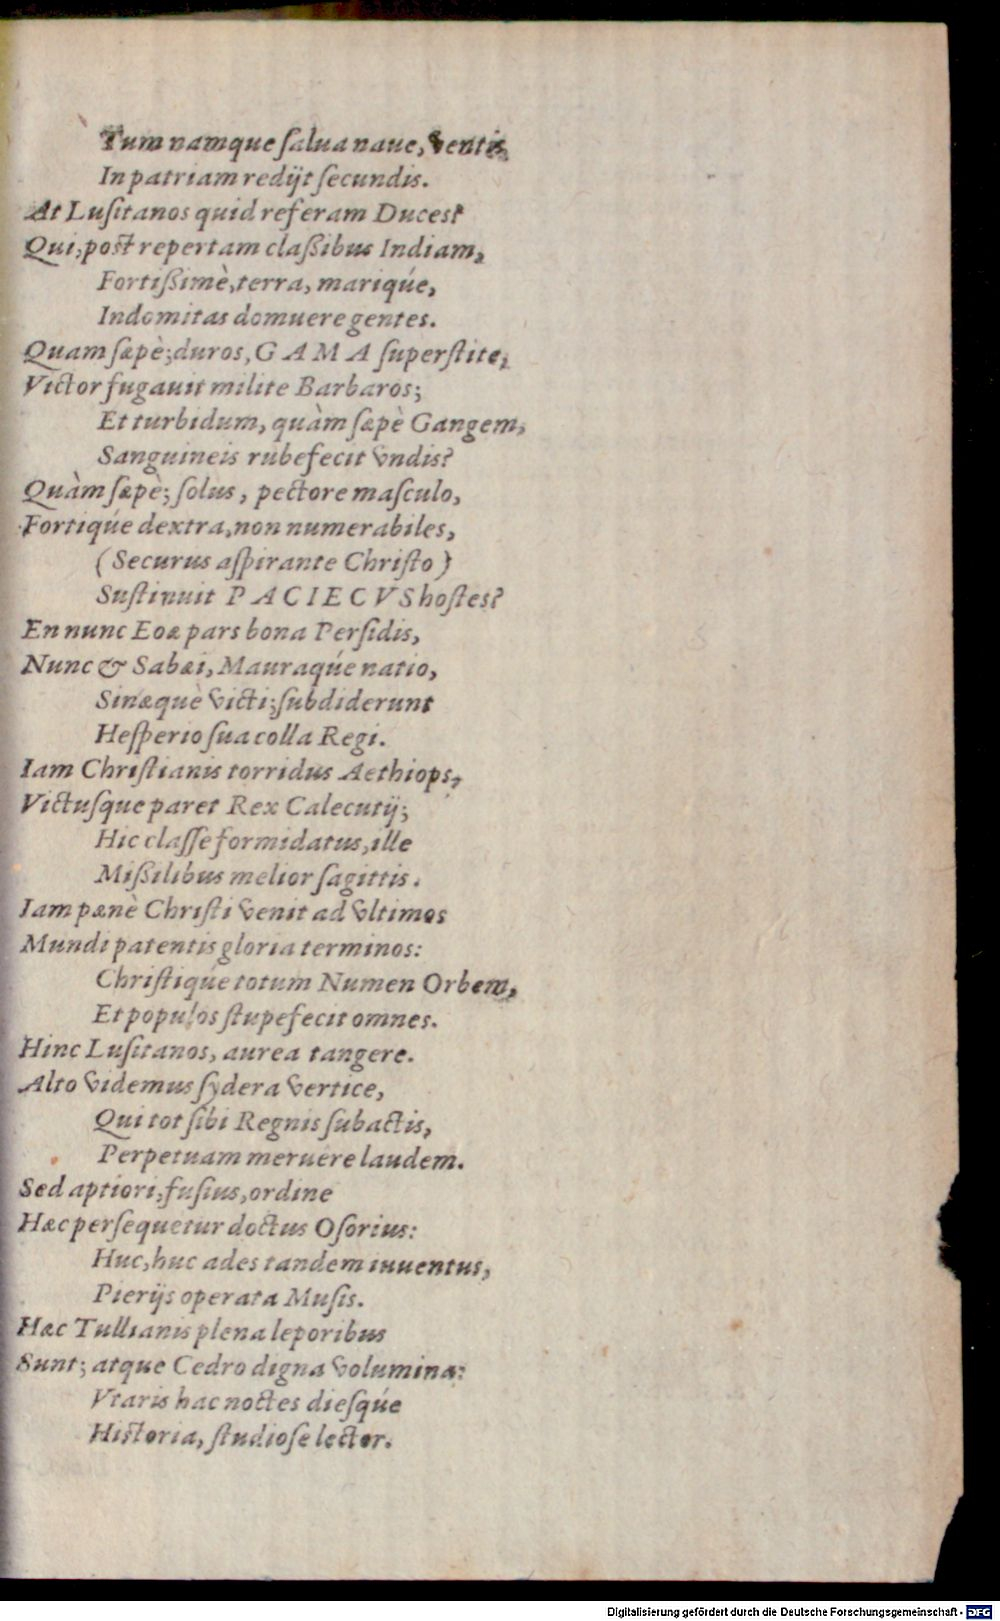 Tum namque ſalua naue, ventis
In patriam redijt ſecundis.
At Luſitanos quid referam Duces?
Qui, poſt repertam claßibus Indiam,
Fortißimè, terra, mariqúe,
Indomitas domuere gentes.
Quam ſæpè; duros, GAMA ſuperſtite,
Victor fugauit milite Barbaros;
Et turbidum, quàm ſæpè Gangem,
Sanguineis rubefecit vndis?
Quàm ſæpè; ſolus, pectore maſculo,
Fortiqúe dextra, non numerabiles,
(Securus aſpirante Chriſto)
Suſtinuit PACIECVS hoſtes?
En nunc Eoæ pars bona Perſidis,
Nunc & Sabæi, Mauraqúe natio,
Sinæquè victi; ſubdiderunt
Heſperio ſua colla Regi.
Iam Chriſtianis torridus Aethiops,
Victuſque paret Rex Calecutij;
Hic claſſe formidatus, ille
Mißilibus melior ſagittis.
Iam pænè Chriſti venit ad vltimos
Mundi patentis gloria terminos:
Chriſtiqúe totum Numen Orbem,
Et populos ſtupefecit omnes.
Hinc Luſitanos, aurea tangere.
Alto videmus ſydera vertice,
Qui tot ſibi Regnis ſubactis,
Perpetuam meruere laudem.
Sed aptiori, fuſius, ordine
Hæc perſequetur doctus Oſorius:
Huc, huc ades tandem iuuentus,
Pierijs operata Muſis.
Hæc Tullianis plena leporibus
Sunt; atque Cedro digna volumina:
Vtaris hac noctes dieſqúe
Hiſtoria, ſtudioſe lector.
Digitalisierung gefördert durch die Deutsche Forschungsgemeinschaft - DFG